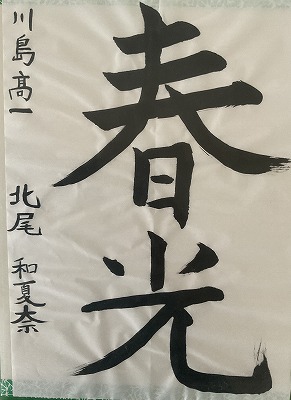 春光
川島高一 北尾 和夏奈